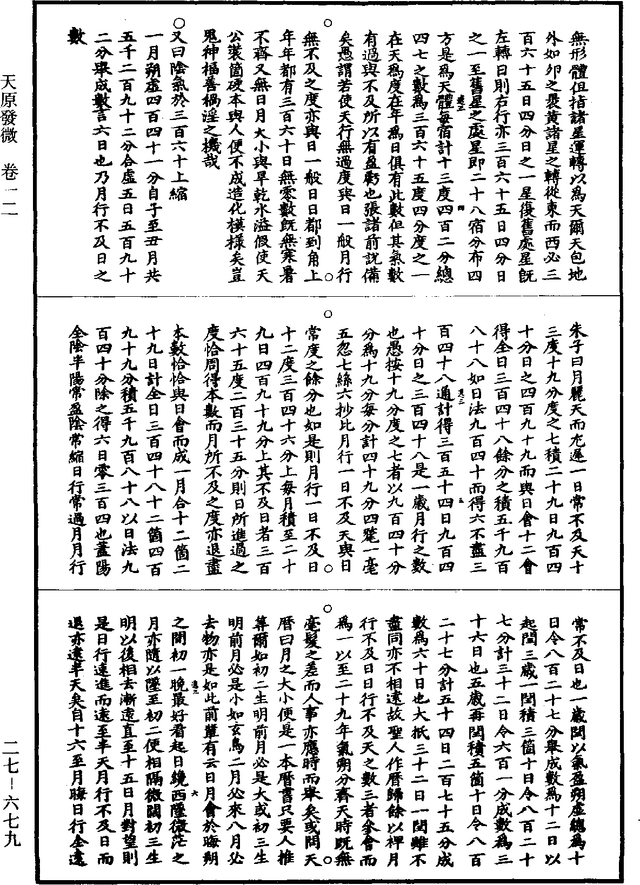 無形體但指諸星運轉以為天爾天包地
外如卵之裹黃諸星之轉從東而西必三
百六十五日四分日之一星復舊處星既
左轉日則右行亦三百六十五日四分日
之一至舊星之處星即二十八宿分布四
方是為天體每宿計十三度四百二分總
四七之數為三百六十五度四分度之一
在天為度在年為日俱有此數但其氣數
有過與不及所以有盈虧也張諸前說備
矣愚謂若使天行無過度與日一般月行
無不及之度亦與日一般日日都到角上
年年都有三百六十日無零數既無寒暑
不齊又無日月大小與旱乾水溢假使天
公裝箇硬本與人便不成造化模樣矣豈
鬼神福善禍淫之機哉
○又曰陰氣於三百六十上縮
一月朔虛四百四十一分自子至丑月共
五千二百九十二分合虛五日五百九十
二分舉成數言六日也乃月行不及日之
數
朱子曰月麗天而尤遲一日常不及天十
三度十九分度之七積二十九日九百四
十分日之四百九十九而與日會十二會
得全日三百四十八餘分之積五千九百
八十八如日法九百四十而得六不盡三
百四十八通計得三百五十四日九百四
十分日之三百四十八是一歲月行之數
也愚按十九分度之七者以九百四十分
分為十九分每分計四十九分四釐一毫
五忽七絲六抄比月行一日不及天與日
常度之餘分也如是則月行一日不及日
十二度三百四十六分上每月積至二十
九日四百九十九分上其不及日者三百
六十五度二百三十五分則日所進過之
度恰周得本數而月所不及之度亦退盡
本數恰恰與日會而成一月合十二箇二
十九日計全日三百四十八十二箇四百
九十九分積五千九百八十八以日法九
百四十分除之得六日零三百四也蓋陽
全陰半陽常盈陰常縮日行常過月月行
常不及日也一歲閏以氣盈朔虛總為十
日令八百二十七分舉成數為十二日以
起閏三歲一閏積三箇十日令八百二十
七分計三十二日令六百一分成數為三
十六日也五歲再閏積五箇十日令八百
二十七分計五十四日二百七十五分成
數為六十日也大抵三十二日一閏雖不
盡同亦不相遠故聖人作曆歸餘以桿月
行不及日日行不及天之數三者參會而
為一以至二十九年氣朔分齊天時既無
毫髮之差而人事亦應時而舉矣或問天
曆曰月之大小便是一本曆書只要人推
算爾如初二生明前月必是大或初三生
明前月必是小如玄鳥二月必來八月必
去物亦是如此前輩有云日月會於晦朔
之間初一晚最好看起日鏡西墜微茫之
月亦隨以墜至初二便相隔微闊初三生
明以後相去漸遠直至十五日月對望則
是日行速進而遠至半天月行不及日而
退亦遠半天矣自十六至月晦日行全遠
天原發微 卷一二
二七-六七九